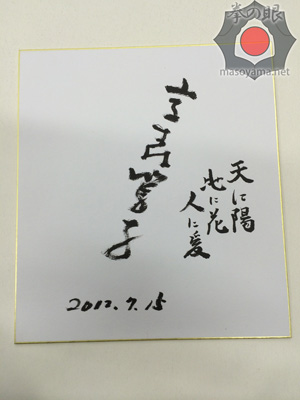 拳の眼
masoyama.net
天に陽
地に花
人に愛
2012.7.15